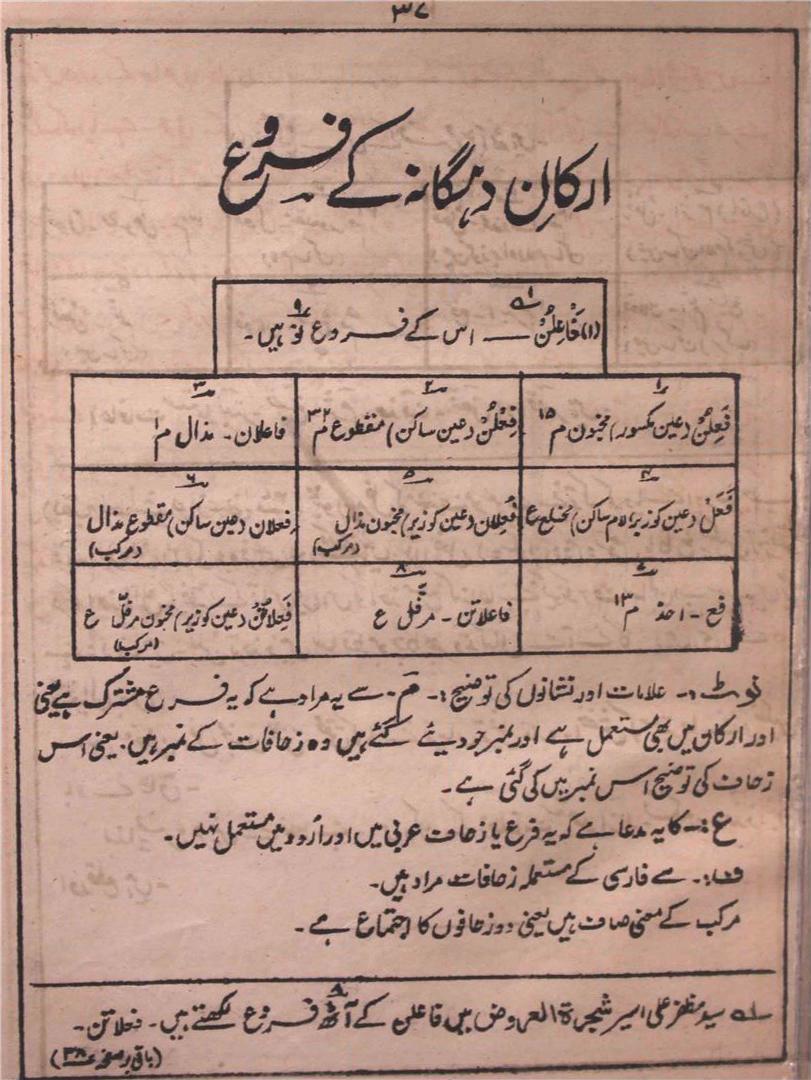 ۳۷
ارکانِ دہگانہ کے فروع
(۱) فَاعِلُنْ ؎۱ — اس کے فروع نَو ۹ ہیں۔
۱ فَعِلُنْ (عین مکسور) مخبون م ۱۵
۲ فِعْلُنْ (عین ساکن) مقطوع م ۳۲
۳ فاعلان۔ مذال م ۱
۴ فَعَلْ (عین کو زبر، لام ساکن) مختلع ع
۵ فَعِلان (عین کو زیر) مخبون مذال (مرکب)
۶ فعلان (عین ساکن) مقطوع مذال (مرکب)
۷ فع۔ احذ م ۱۳
۸ فاعلاتن۔ مرفّل ع
فَعِلاتُنْ (عین کو زیر) مخبون مرفّل ع (مرکب)
نوٹ:۔ علامات اور نشانوں کی توضیح:۔ م۔ سے یہ مراد ہے کہ یہ فرع مشترک ہے یعنی
اور ارکان میں بھی مستعمل ہے اور نمبر جو دیئے گئے ہیں وہ زحافات کے نمبر ہیں۔ یعنی اس
زحاف کی توضیح اس نمبر میں کی گئی ہے۔
ع:۔ کا یہ مدعا ہے کہ یہ فرع یا زحاف عربی میں اور اُردو میں مستعمل نہیں۔
ف:۔ سے فارسی کے مستعملہ زحافات مراد ہیں۔
مرکب کے معنی صاف ہیں یعنی دو زحافوں کا اجتماع ہے۔
؎۱ سید مظفر علی اسیر شجرۃ العروض میں فاعلن کے آٹھ ۸ فروع لکھتے ہیں۔ فعلاتن۔
(باقی بر صفحہ ۳۸)